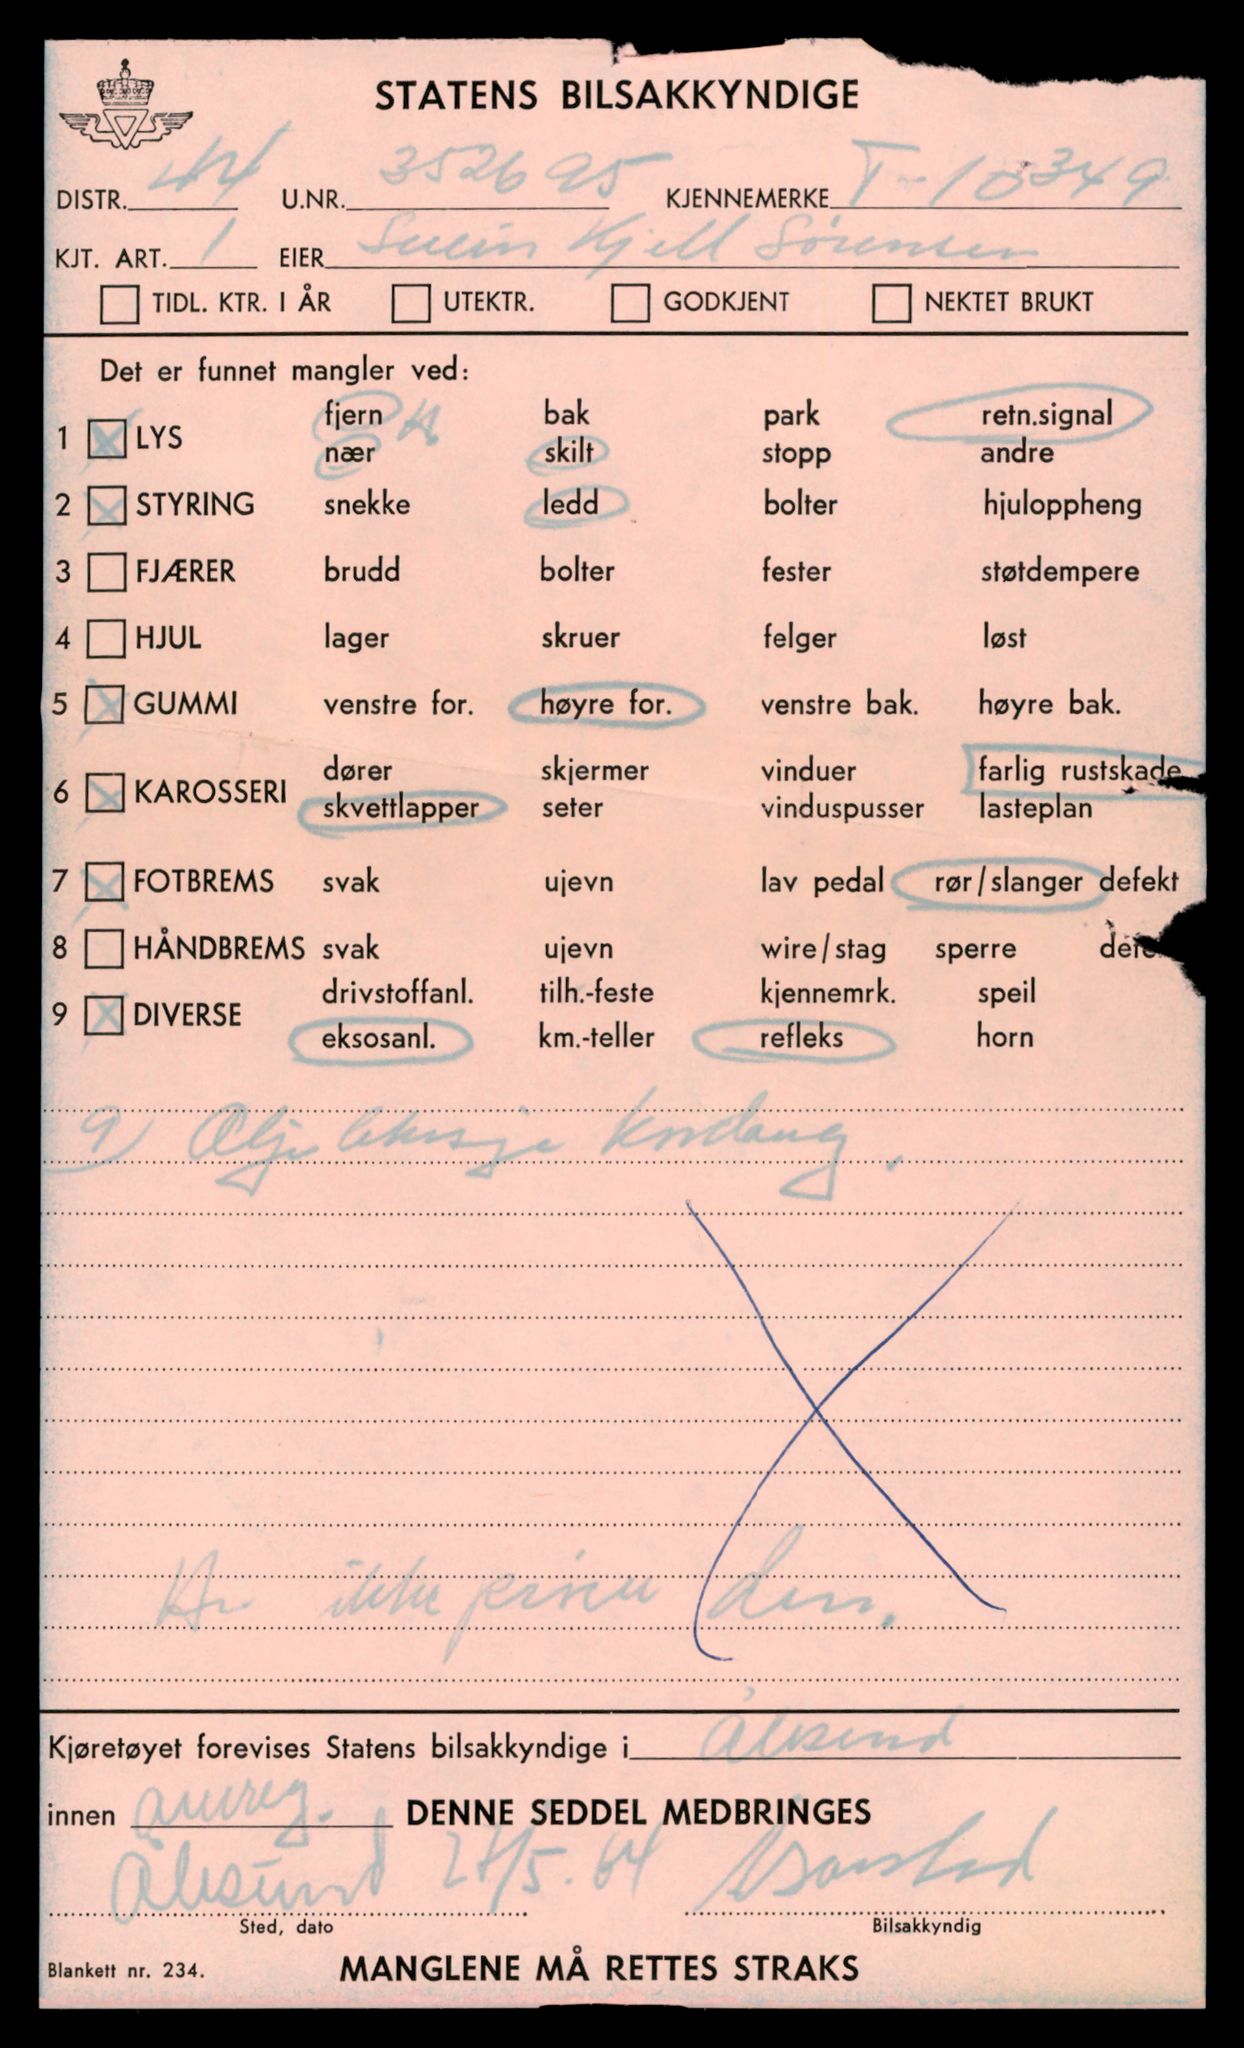 STATENS BILSAKKYNDIGE
DISTR. 44 U.NR. 352695 KJENNEMERKE T-10349
KJT. ART. 1 EIER Svein Kjell Sørensen
TIDL. KTR. I ÅR UTEKTR. GODKJENT NEKTET BRUKT
Det er funnet mangler ved:
fjern H bak park retn.signal
1 X LYS
nær skilt stopp andre
2 X STYRING snekke ledd bolter hjuloppheng
3 FJÆRER brudd bolter fester støtdempere
4 HJUL lager skruer felger løst
5 X GUMMI venstre for. høyre for. venstre bak. høyre bak.
dører skjermer vinduer farlig rustskade
6 X KAROSSERI
skvettlapper seter vinduspusser lasteplan
7 X FOTBREMS svak ujevn lav pedal rør/slanger defekt
8 HÅNDBREMS svak ujevn wire/stag sperre defe
drivstoffanl. tilh.-feste kjennemrk. speil
9 X DIVERSE
eksosanl. km.-teller refleks horn
9) Olje lekasje
ikke
Kjøretøyet forevises Statens bilsakkyndige i Ålesund
innen DENNE SEDDEL MEDBRINGES
Ålesund 27/5.64
Sted, dato Bilsakkyndig
Blankett nr. 234. MANGLENE MÅ RETTES STRAKS